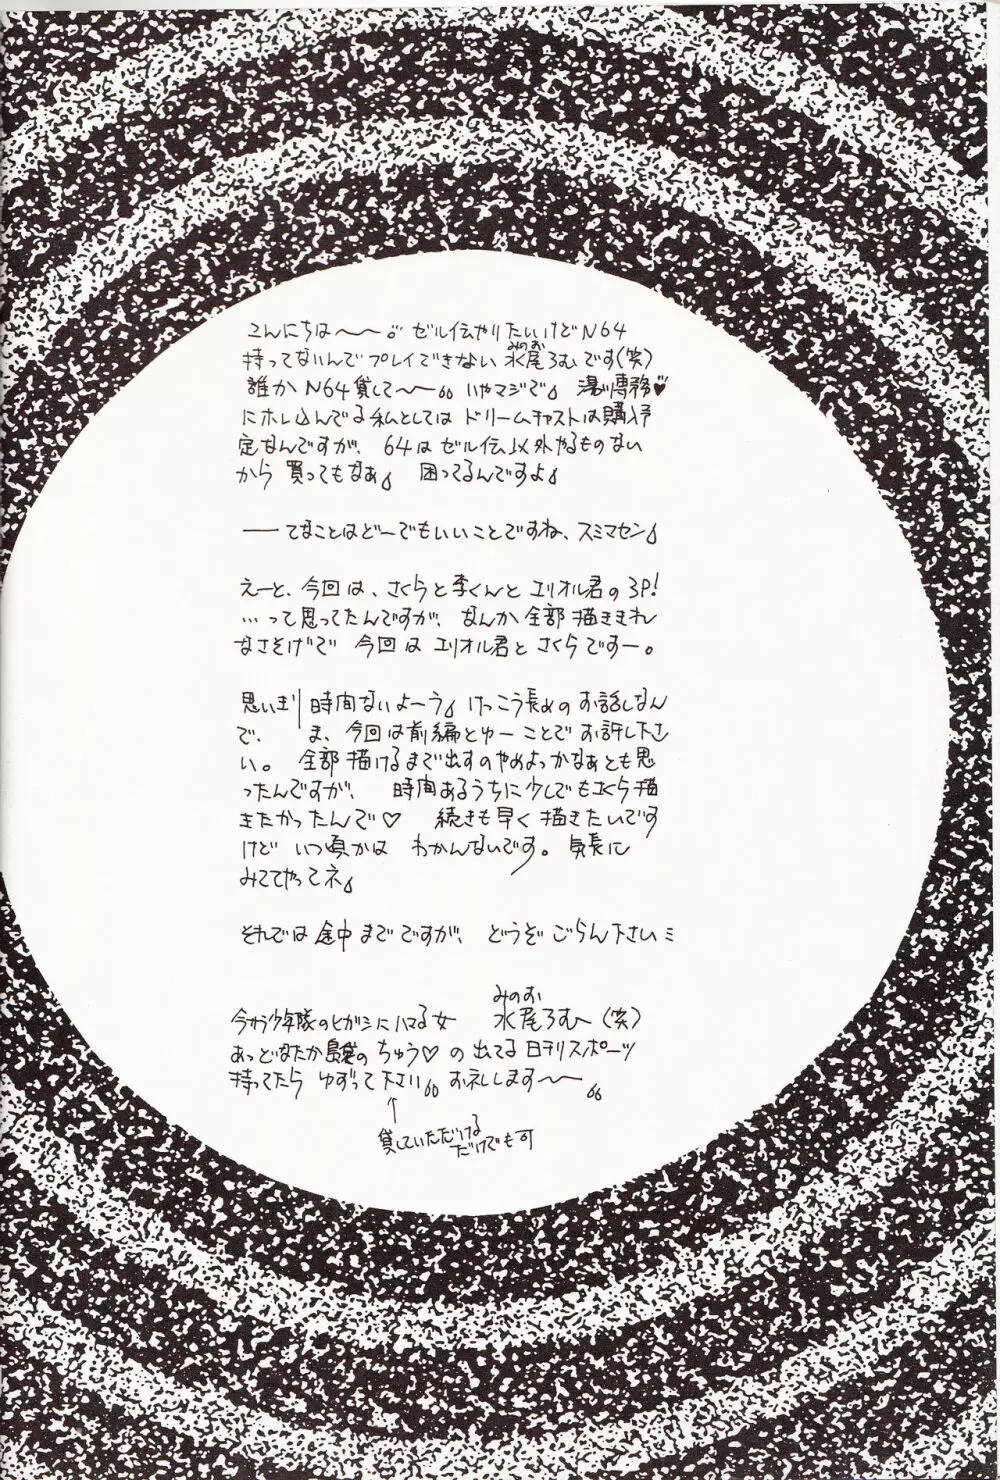 こんにちは〜〜 ゼル伝やりたいけどN64
持ってないんでプレイできない 水尾ろむです(笑)
みのお
誰かN64貸して〜〜 いやマジで 湯川専務♡
にホレ込んでる私としては ドリームキャストは購入予
定なんですが、64はゼル伝以外やるものない
から 買ってもなぁ 困ってるんですよ
──てなことはどーでもいいことですね、スミマセン
えーと、今回は、さくらと李くんと エリオル君の3P!
…って思ってたんですが、なんか全部描ききれ
なさそげで 今回は エリオル君と さくらですー。
思いきり時間ないよーう けっこう長めの お話しなん
で、 ま、今回は前編とゆーことで お許し下さ
い。 全部描けるまで出すのやめよっかなぁとも思
ったんですが、 時間あるうちに少しでもさくら描
きたかったんで♡ 続きも早く描きたいです
けど いつ頃かは わかんないです。気長に
みててやってネ
それでは 途中までですが、 どうぞ ごらん下さい
みのお
今から少年隊のヒガシにハマる女 水尾ろむ〜(笑)
あっどなたか のちゅう♡の出てる 日刊スポーツ
持ってたら ゆずって下さい お礼します〜〜
↑
貸していただける
だけでも可